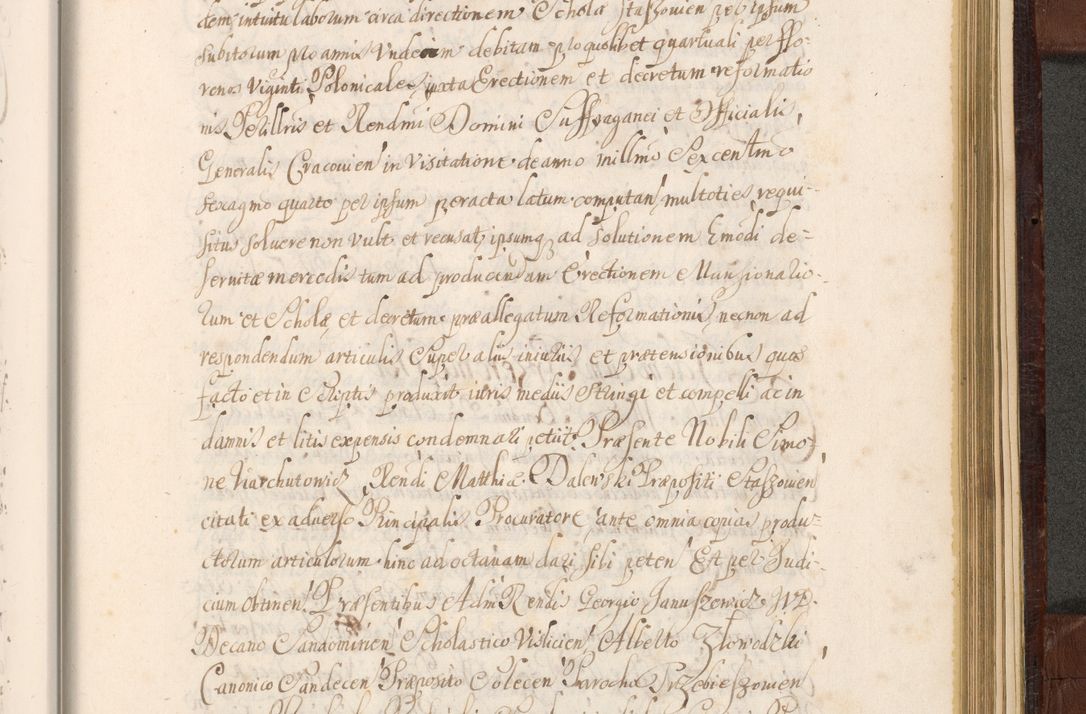 dem intuitu laborum circa directionem Scholæ Staszovien per ipsum
subitorum pro annis Undecim debitam pro quolibet quartuali per flo-
renos Viginti Polonicales juxta Erectionem et decretum reformatio
nis Perillris et Rendmi Domini Suffraganei et Officialis
Generalis Cracovien in Visitatione de anno millmo Sexcentmo
sexagmo quarto per ipsum peracta latum computan multoties requi-
situs solvere non vult et recusat, ipsumq ad solutionem Emodi de=
servitæ mercedis tum ad producendam Erectionem Mansionario-
rum et Scholæ et decretum præallegatum Reformationis, necnon ad
respondendum articulis Super aliis iniuriis et prætensionibus quos
facto et in Scriptis produxit iuris mediis Stringi et compelli ac in
damnis et litis expensis condemnari petiit. Præsente Nobili Simo-
ne Rendi Matthiæ Dalenski Præpositi Staszovien
citati ex adverso Principalis Procuratore ante omnia copias produ=
ctorum articulorum hinc ad octavam dari sibi peten Et per Judi-
cium obtinen. Præsentibus Adm Rendis Georgio Januszowicz JVD.
Decano Sandomirien Scholastico Vislicien, Alberto Zlowodzki
Canonico Sandecen Præposito Solecen Parocho Przebieszovien